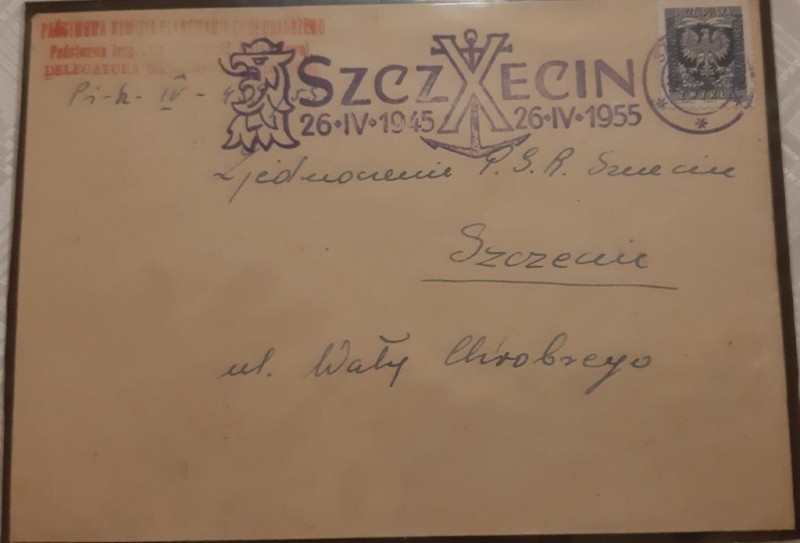 PAŃSTWOWA KOMISJA PLANOWANIA GOSPODARCZEGO
Państwowa
DELEGATURA
Pi-h- IV -
SZCZXECIN
26•IV•1945 26•IV•1955
POCZTA POLSKA
Zjednoczenie P.G.R. Szczecin
Szczecin
ul. Wały Chrobrego